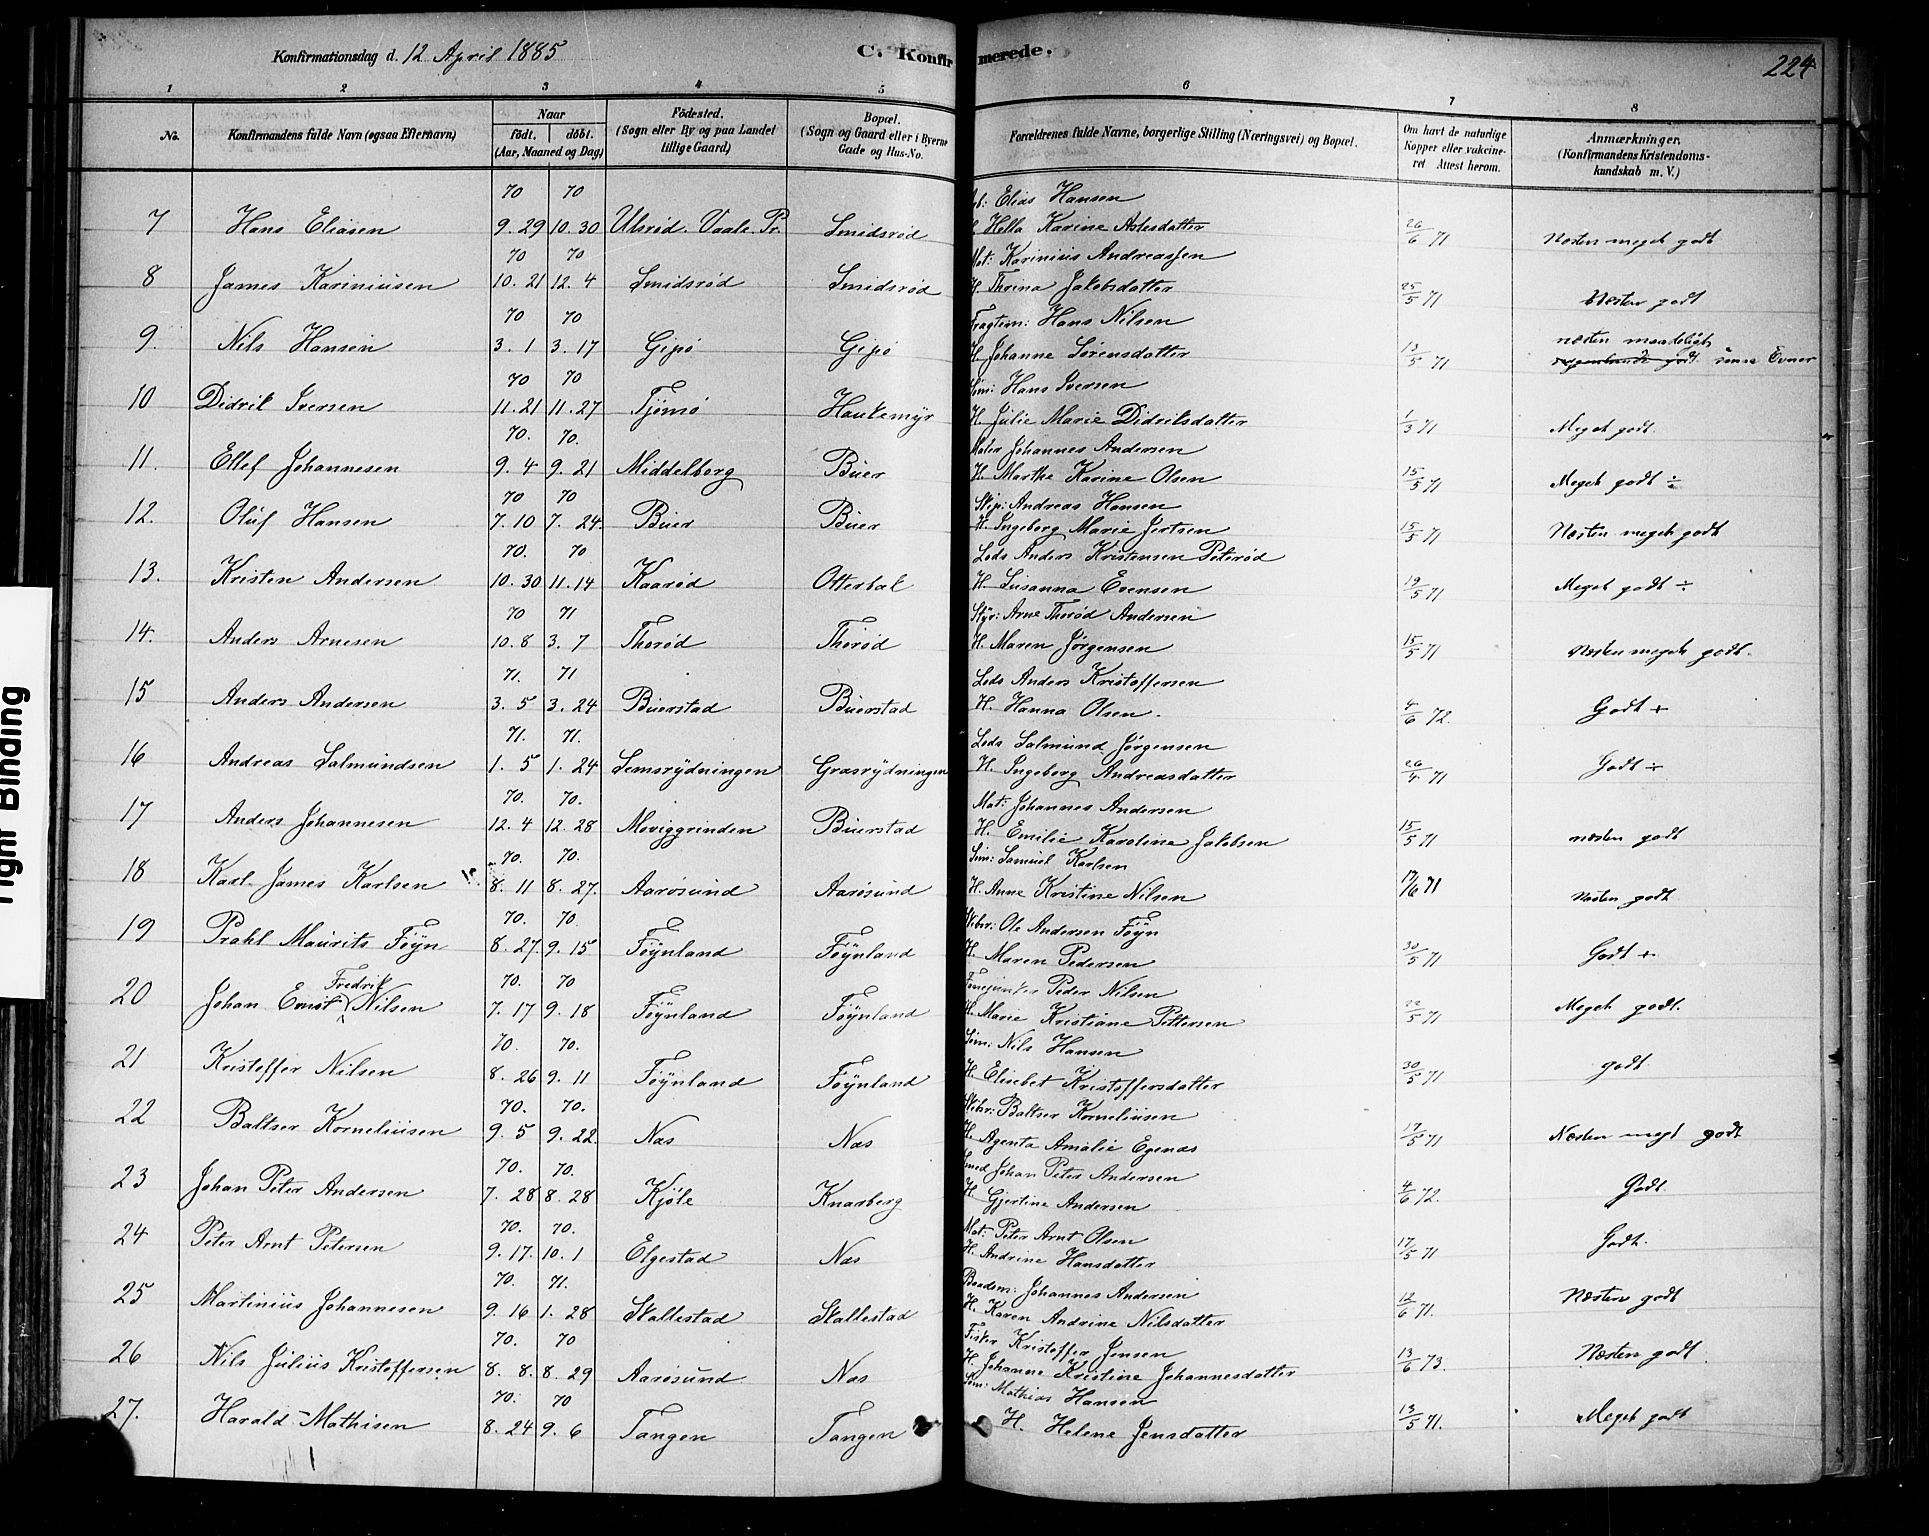 Konfirmationsdag d. 12 April 1885
C. Konfirmerede.
224
1 2 3 4 5 6 7 8
No. Konfirmandens fulde Navn (ogsaa Efternavn) Naar født. døbt. (Aar, Maaned og Dag) Födested. (Sogn eller By og paa Landet tillige Gaard) Bopæl. (Sogn og Gaard eller i Byerne Gade og Hus-No. Forældrenes fulde Navne, borgerlige Stilling (Næringsvei) og Bopæl. Om havt de naturlige Kopper eller vakcineret Attest herom. Anmærkninger. (Konfirmandens Kristendomskundskab m. V.)
70 70 Elias Hansen
7 Hans Eliasen 9. 29 10. 30 Ulsrød. Vaale Pr. Smidsrød Hella Karine Aslesdatter 26/6 71 Næsten meget godt
70 70 Mat: Karinius Andreassen
8 James Kariniusen 10. 21 12. 4 Smidsrød Smidsrød H. Thrina Jakobsdatter 25/5 71 Næsten godt
70 70 Fragtem: Hans Nilsen
9. Nils Hansen 3. 1 3. 17 Gipø Gipø H. Johanne Sørensdatter 13/5 71 næsten maadeligt Evner
70 70 Søm: Hans Iversen
10 Didrik Iversen 11. 21 11. 27 Tjømø Haukemyr H. Julie Marie Didriksdatter 1/3 71 Meget godt.
70. 70. Mater Johannes Andersen
11. Ellef Johannesen 9. 4 9. 21 Middelborg Buer H. Marthe Karine Olsen 15/5 71 Meget godt ÷
70 70 Skip: Andreas Hansen
12. Oluf Hansen 7. 10 7. 24. Buer Buer H. Ingeborg Marie Jertsen 15/5 71 Næsten meget godt
70. 70 Leds Anders Kristensen Peterød
13. Kristen Andersen 10. 30 11. 14 Kaarød Otterbæk H. Susanna Evensen 19/5 71 Meget godt ÷
70 71 Styr: Arne Thorød Andersen
14. Anders Arnesen 10. 8 3. 7 Thorød Thorød H. Maren Jørgensen 15/5 71 Næsten meget godt.
71. 71 Leds Anders Kristoffersen
15 Anders Andersen 3. 5 3. 24 Buerstad Buerstad H. Hanna Olsen. 4/6 72. Godt +
71. 71. Leds Salmund Jørgensen
16 Andreas Salmundsen 1. 5 1. 24 Semsrydningen Græsrydningen H. Ingeborg Andreasdatter 26/4 71 Godt ÷
70. 70. Mat: Johannes Andersen
17 Anders Johannesen 12. 4 12. 28 Moviggrinden Buerstad H. Emilie Karoline Jakobsen 15/5 71 næsten godt
70. 70. Søm: Samuel Karlsen
18 Karl James Karlsen 8. 11 8. 27. Aarøsund Aarøsund H. Anne Kristine Nilsen 17/6 71 Næsten godt
70. 70. Skibsr: Ole Andersen Føyn
19 Prahl Maurits Føyn 8. 27. 9. 15 Føynland Føynland H. Maren Pedersen 30/5 71 Godt +
Fredrik 70. 70 Peder Nilsen
20 Johan Ernst Nilsen 7. 17 9. 18 Føynland Føynland H. Marie Kristiane Pettersen 22/5 71 Meget godt.
70. 70. Søm: Nils Hansen
21 Kristoffer Nilsen 8. 26 9. 11 Føynland Føynland H. Elisebet Kristoffersdatter 30/5 71 godt
70. 70. Skibsr: Baltser Korneliusen
22 Baltser Korneliusen 9. 5 9. 22 Næs Næs H. Agenta Amalie Egenæs 17/5 71 Næsten megt godt
70. 70. Smed Johan Peter Andersen
23 Johan Peter Andersen 7. 28 8. 28 Kjøle Knarberg H. Gjertine Andersen 4/6 72. Godt
70. 70. Mat: Peter Arnt Olsen
24 Peter Arnt Petersen 9. 17. 10. 1 Elgestad Næs H. Andrine Hansdatter 17/5 71 Godt.
70. 71. Baadsm: Johannes Andersen
25 Martinius Johannesen 9. 16 1. 28 Skallestad Skallestad H. Karen Andrine Nilsdatter 12/6 71. Næsten godt
70. 70 Fisker Kristoffer Jensen
26 Nils Julius Kristoffersen 8. 8. 8. 29 Aarøsund Næs H. Johanne Kristine Johannesdatter 13/6 73. Næsten godt
70. 70 Søm: Mathias Hansen
27. Harald Mathisen 8. 24 9. 6 Tangen Tangen H. Helene Jensdatter 13/5 71. Meget godt
Tight Binding